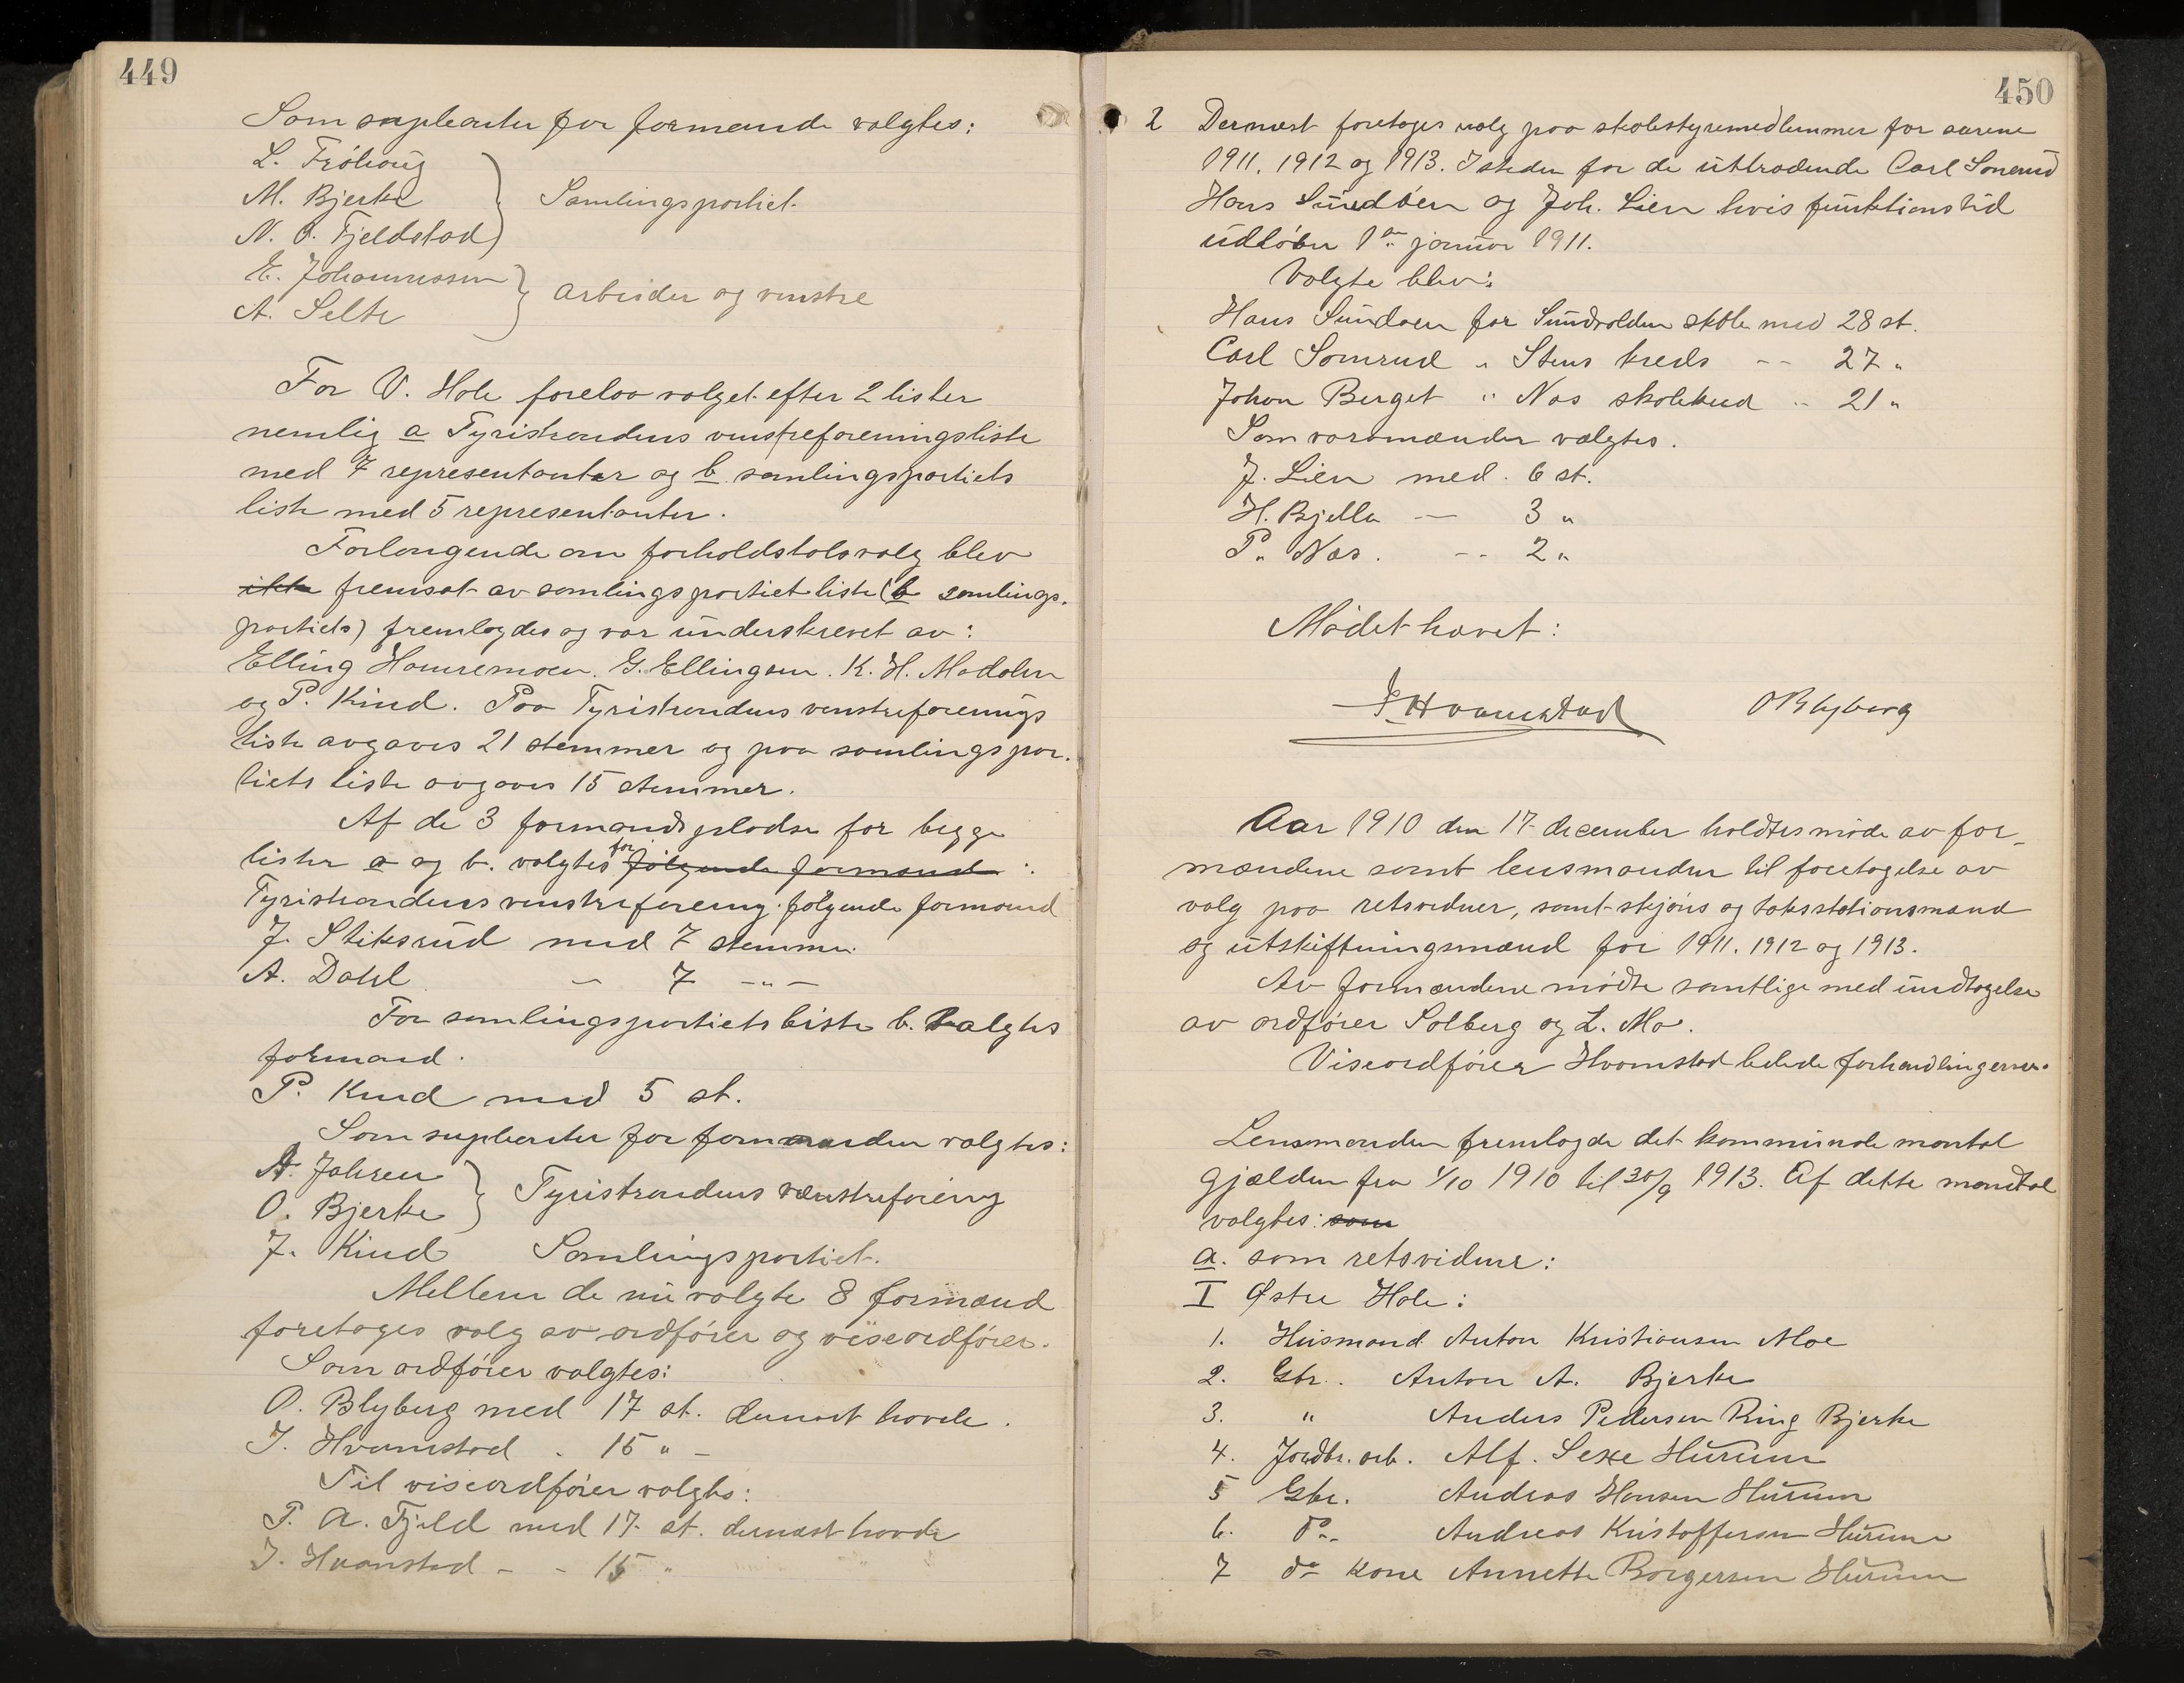 449
Som suplearter for formænde valgtes:
L. Fröhoug
M. Bjerke
Samlingspartiet.
N. O. Fjeldstad
E. Johannessen
arbeider og venstre
A. Selte
For V. Hole forelaa valget efter 2 lister
nemlig a Tyristrandens venstreforeningsliste
med 7 representanter og b samlingspartiets
liste med 5 representanter.
Forlangende om forholdstalsvalg blev
ikke fremsat av samlingspartiet liste (b samlings.
partiets) fremlagdes og var underskrevet av:
Elling Hamremoen. G. Ellingsen. K. H. Modalen
og P. Kind. Paa Tyristrandens venstreforenings
liste avgaves 21 stemmer og paa samlingspar.
tiets liste avgaves 15 stemmer.
Af de 3 formandspladse for begge
lister a og b. valgtes for følgende formænd :
Tyristrandens venstreforening følgende formænd
J. Stiksrud med 7 stemmer
A. Dahl — 7 —"—
For samlingspartiets liste b. valgtes
formand.
P. Kind med 5 st.
Som suplearter for formænden valgtes:
A. Jahren
Tyristrandens venstreforening
O. Bjerke
J. Kind Samlingspartiet.
Mellem de nu valgte 8 formænd
foretoges valg av ordfører og viseordfører.
Som ordfører valgtes:
O. Blyberg med 17 st. dernæst havde.
J. Hvamstad - 15 " -
Til viseordfører valgtes:
P. A. Fjeld med 17 st. dernæst havde
J. Hvamstad - - 15 "
450
2 Dernæst foretoges valg paa skolestyremedlemmer for aarene
1911, 1912 og 1913. Isteden for de uttrædende Carl Somrud
Hans Sundøen og Joh. Lien hvis funktionstid
udløber 1ste januar 1911.
Valgte blev:
Hans Sundøen for Sundvolden skole med 28 st.
Carl Somrud " Stens kreds -- 27 "
Johan Berget " Næs skolekred -- 21 "
Som varamænder valgtes.
J. Lien med 6 st.
H. Bjella — 3 "
P. Næs. -- 2 "
Mødet hævet:
J. Hvamstad O Blyberg
Aar 1910 den 17 december holdtes møde av for-
mændene samt lensmanden til foretagelse av
valg paa retsvidner, samt skjøns og takstationsmænd
og utskiftningsmænd for 1911. 1912 og 1913.
Av formændene mødte samtlige med undtagelse
av ordfører Solberg og L. Mo.
Viseordfører Hvamstad ledede forhandlingerne.
Lensmanden fremlagde det kommunale mantal
gjælden fra 1/10 1910 til 30/9 1913. Af dette mandtal
valgtes: som
a. som retsvidner:
I Østre Hole:
1. Husmand Anton Kristiansen Moe
2. Gbr. Anton A. Bjerke
3. " Anders Pedersen Ring Bjerke
4. Jordbr. arb. Alf. Sexe Hurum
5 Gbr. Andreas Hansen Hurum
6. do Andreas Kristoffersen Hurum
7 do kone Annette Borgersen Hurum